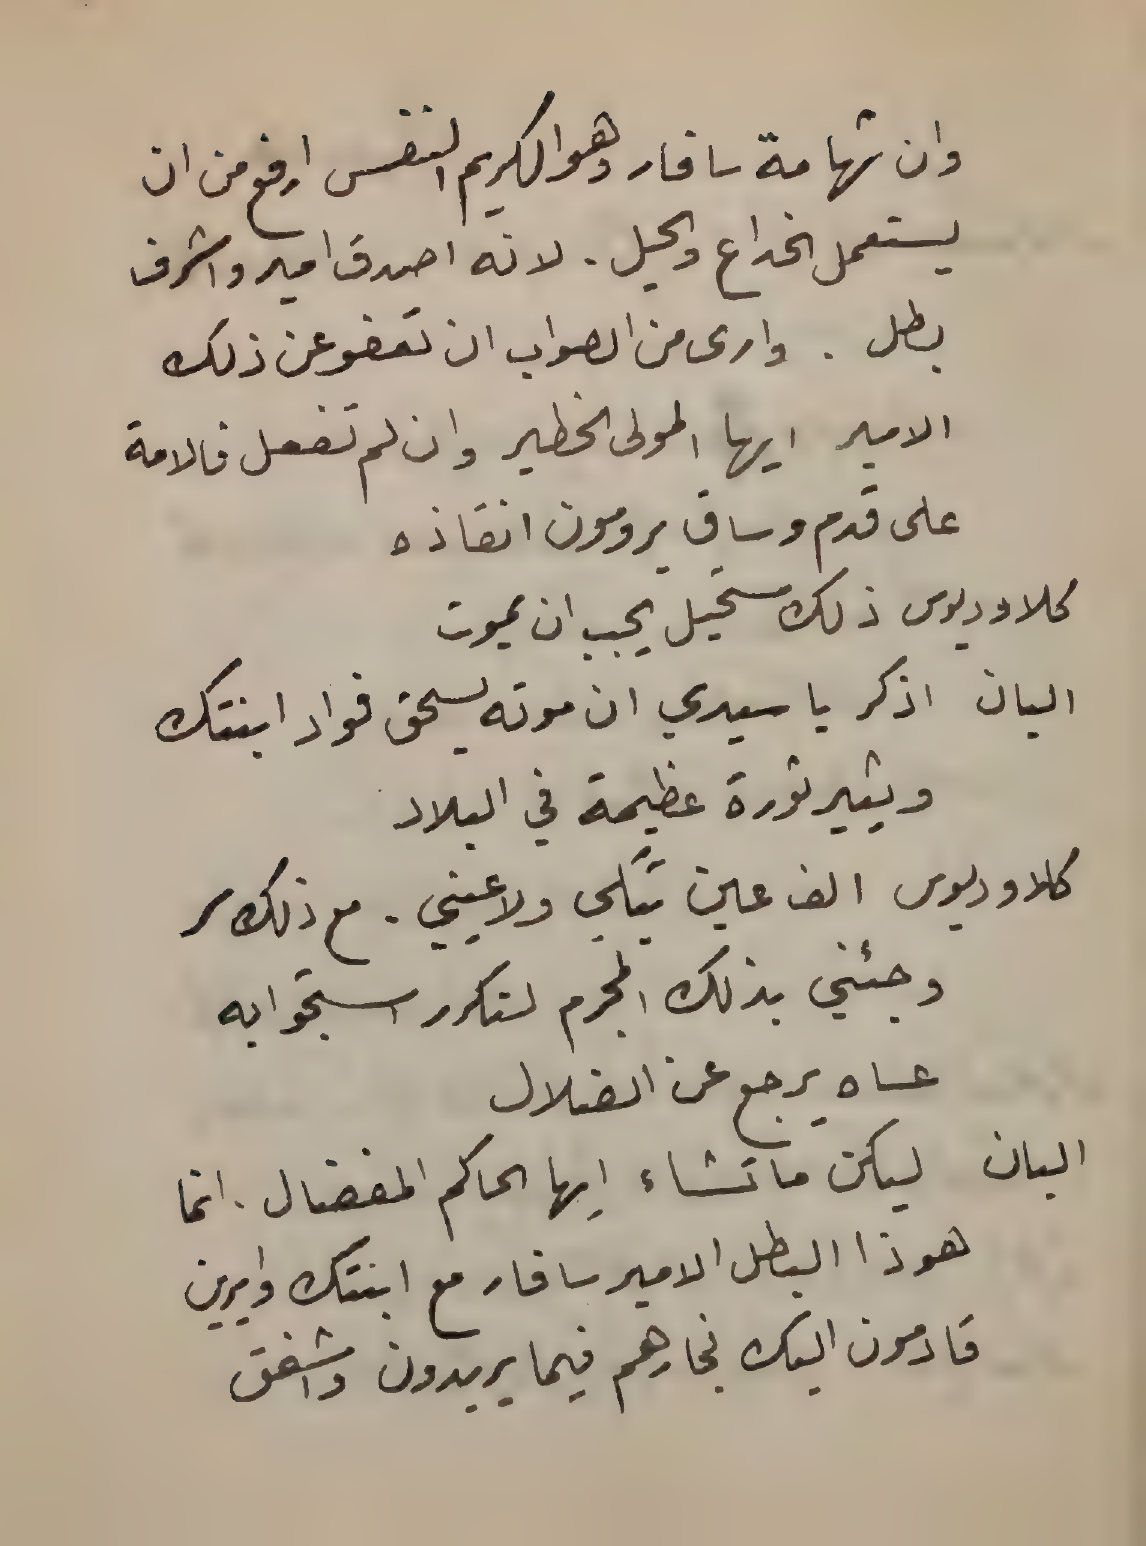 وان شهامة سافار وهو الكريم النفس ارفع من ان
يستعمل الخداع والحيل . لانه اصدق امير واشرف
بطل . وارى من الصواب ان تعفو عن ذلك
الامير ايها المولى الخطير وان لم تفعل فالامة
على قدم وساق يرومون انقاذه
كلاوديوس ذلك مستحيل يجب ان يموت
البان اذكر يا سيدي ان موته يسحق فواد ابنتك
ويثير ثورة عظيمة في البلاد
كلاوديوس الف عين تبكي ولا عيني . مع ذلك سر
وجئني بذلك المجرم لنكرر استجوابه
عساه يرجع عن الضلال
البان ليكن ما تشاء ايها الحاكم المفضال . انما
هوذا البطل الامير سافار مع ابنتك وايرين
قادمون اليك فجارهم فيما يريدون واشفق